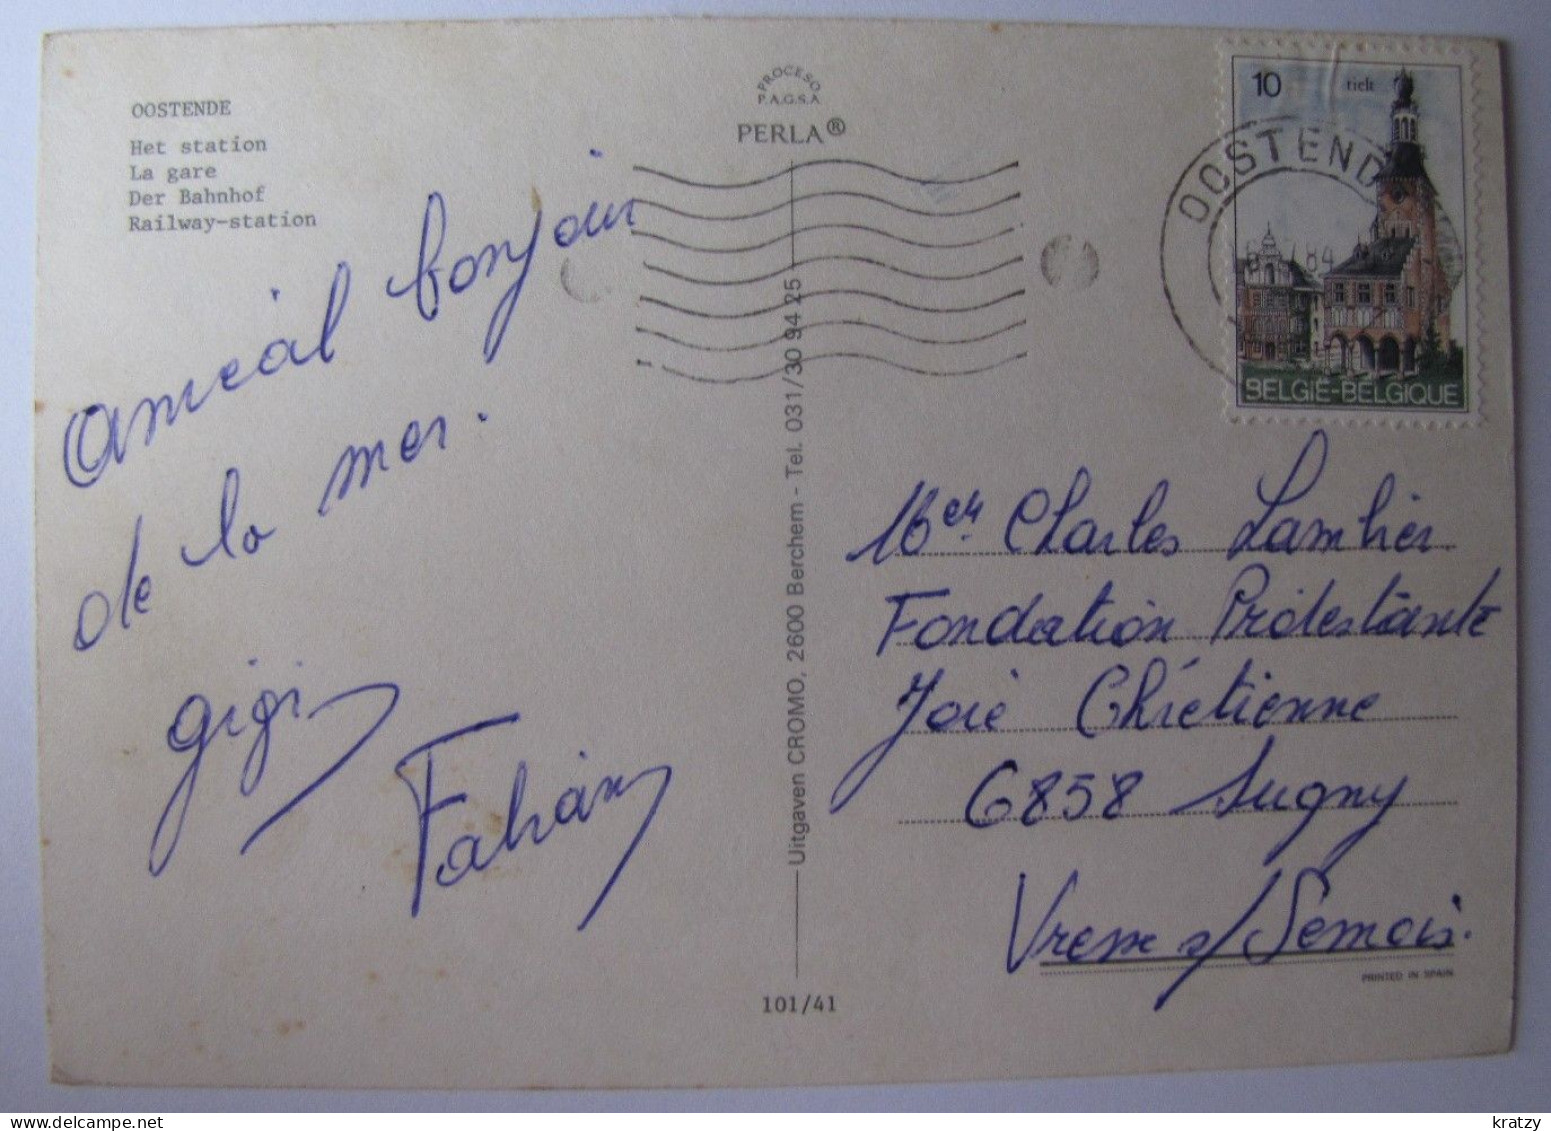 OOSTENDE
Het station
La gare
Der Bahnhof
Railway-station
PROCESO
P.A.G.S.A
PERLA®
amical bonjour
de la mer.
gigi
Fabian
Uitgaven CROMO, 2600 Berchem - Tel. 031/30 94 25
101/41
10 tielt
BELGIË-BELGIQUE
OOSTENDE
84
Charles Lambier
Fondation Protestante
Joie Chrétienne
6858 Sugny
Vresse s/Semois.
PRINTED IN SPAIN
kratzy